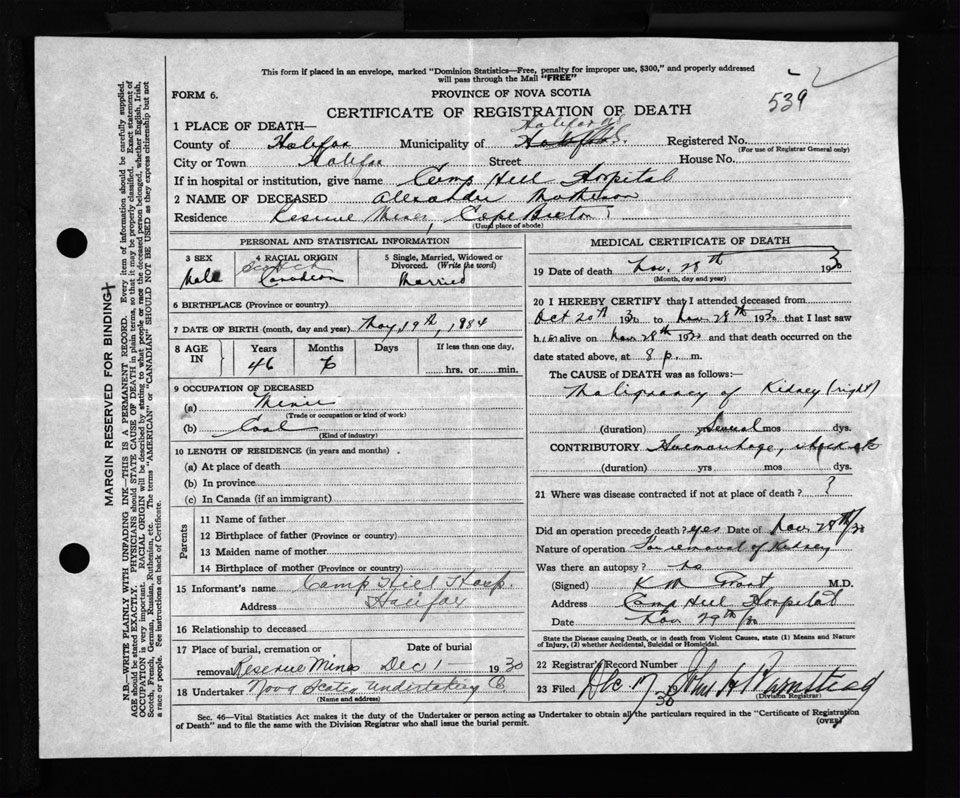 This form if placed in an envelope, marked "Dominion Statistics—Free, penalty for improper use, $300," and properly addressed
will pass through the Mail "FREE"
FORM 6.
PROVINCE OF NOVA SCOTIA
539
CERTIFICATE OF REGISTRATION OF DEATH
1 PLACE OF DEATH—
County of Halifax Municipality of Halifax Registered No.
(For use of Registrar General only)
City or Town Halifax Street House No.
If in hospital or institution, give name Camp Hill Hospital
2 NAME OF DECEASED Alexander Matheson
Residence Reserve Mines, Cape Breton
(Usual place of abode)
PERSONAL AND STATISTICAL INFORMATION
3 SEX 4 RACIAL ORIGIN 5 Single, Married, Widowed or Divorced. (Write the word)
Male Scotch Canadian Married
6 BIRTHPLACE (Province or country)
7 DATE OF BIRTH (month, day and year) May 19th, 1884
8 AGE IN Years Months Days If less than one day,
46 6 hrs. or min.
9 OCCUPATION OF DECEASED
(a) Miner
(Trade or occupation or kind of work)
(b) Coal
(Kind of industry)
10 LENGTH OF RESIDENCE (in years and months)
(a) At place of death
(b) In province
(c) In Canada (if an immigrant)
Parents
11 Name of father
12 Birthplace of father (Province or country)
13 Maiden name of mother
14 Birthplace of mother (Province or country)
15 Informant's name Camp Hill Hosp.
Address Halifax
16 Relationship to deceased
17 Place of burial, cremation or removal Reserve Mines Date of burial Dec 1 1930
18 Undertaker Nova Scotia Undertaking Co
(Name and address)
MEDICAL CERTIFICATE OF DEATH
19 Date of death Nov. 28th 1930
(Month, day and year)
20 I HEREBY CERTIFY that I attended deceased from
Oct 20th 1930 to Nov. 28th 1930 that I last saw
him alive on Nov. 28th 1930 and that death occurred on the
date stated above, at 8 p. m.
The CAUSE of DEATH was as follows:—
Malignancy of Kidney (right)
(duration) yrs Several mos dys.
CONTRIBUTORY Haemorrhage, shock etc
(duration) yrs mos dys.
21 Where was disease contracted if not at place of death? ?
Did an operation precede death? yes Date of Nov. 28th/30
Nature of operation For removal of Kidney
Was there an autopsy? No
(Signed) K M Grant M.D.
Address Camp Hill Hospital
Date Nov. 29th/30
State the Disease causing Death, or in death from Violent Causes, state (1) Means and Nature
of Injury, (2) whether Accidental, Suicidal or Homicidal.
22 Registrar's Record Number
23 Filed Dec 17 30 John H Barnstead
(Division Registrar)
Sec. 46—Vital Statistics Act makes it the duty of the Undertaker or person acting as Undertaker to obtain all the particulars required in the "Certificate of Registration
of Death" and to file the same with the Division Registrar who shall issue the burial permit.
(OVER)
MARGIN RESERVED FOR BINDING
N.B.—WRITE PLAINLY WITH UNFADING INK—THIS IS A PERMANENT RECORD. Every item of information should be carefully supplied.
AGE should be stated EXACTLY. PHYSICIANS should STATE CAUSE OF DEATH in plain terms, so that it may be properly classified. Exact statement of
OCCUPATION is very important. RACIAL ORIGIN will be described by stating to what people or race the deceased person belonged, whether English, Irish,
Scotch, French, German, Russian, Ruthenian, etc. The terms "AMERICAN" or "CANADIAN" SHOULD NOT BE USED as they express citizenship but not
a race or people. See instructions on back of Certificate.